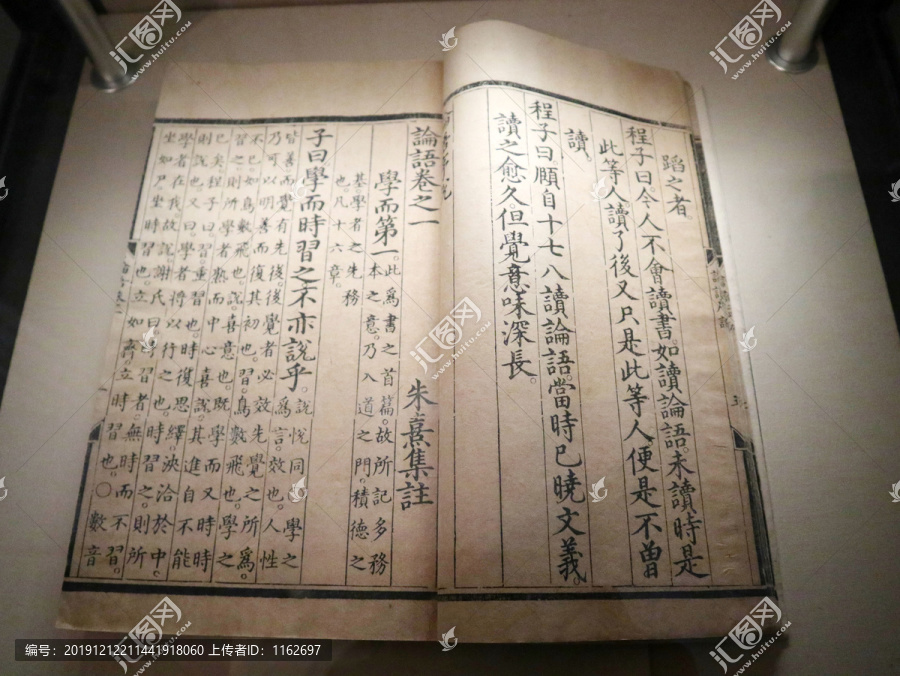 蹈之者
程子曰。今人不會讀書。如讀論語。未讀時是
此等人。讀了後又只是此等人。便是不曾
讀。
程子曰。頤自十七八讀論語。當時已曉文義。
讀之愈久。但覺意味深長。
論語卷之一 朱熹集註
學而第一
此為書之首篇。故所記多務
本之意。乃入道之門。積德之
基。學者之先務
也。凡十六章。
子曰學而時習之不亦說乎。
說悅同 學之
為言。效也。人性
皆善。而覺有先後。後覺者必效先覺之所為。
乃可以明善而復其初也。習。鳥數飛也。學之
不已。如鳥數飛也。說。喜意也。既學而又時時
習之。則所學者熟。而中心喜說。其進自不能
已矣。程子曰。習重習也。時復思繹。浹洽於中。
則說也。又曰。學者將以行之也。時習之。則所
學者在我。故說。謝氏曰。時習者。無時而不習。
坐如尸。坐時習也。立如齊。立時習也。○數音
汇图网
www.huitu.com
编号：20191212211441918060 上传者ID：1162697